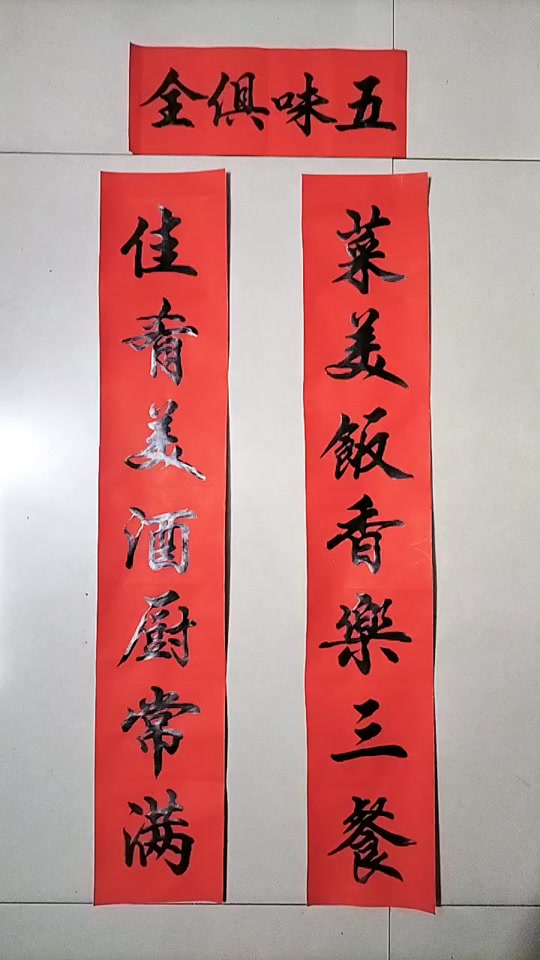 五味俱全
菜美飯香樂三餐
佳肴美酒厨常满